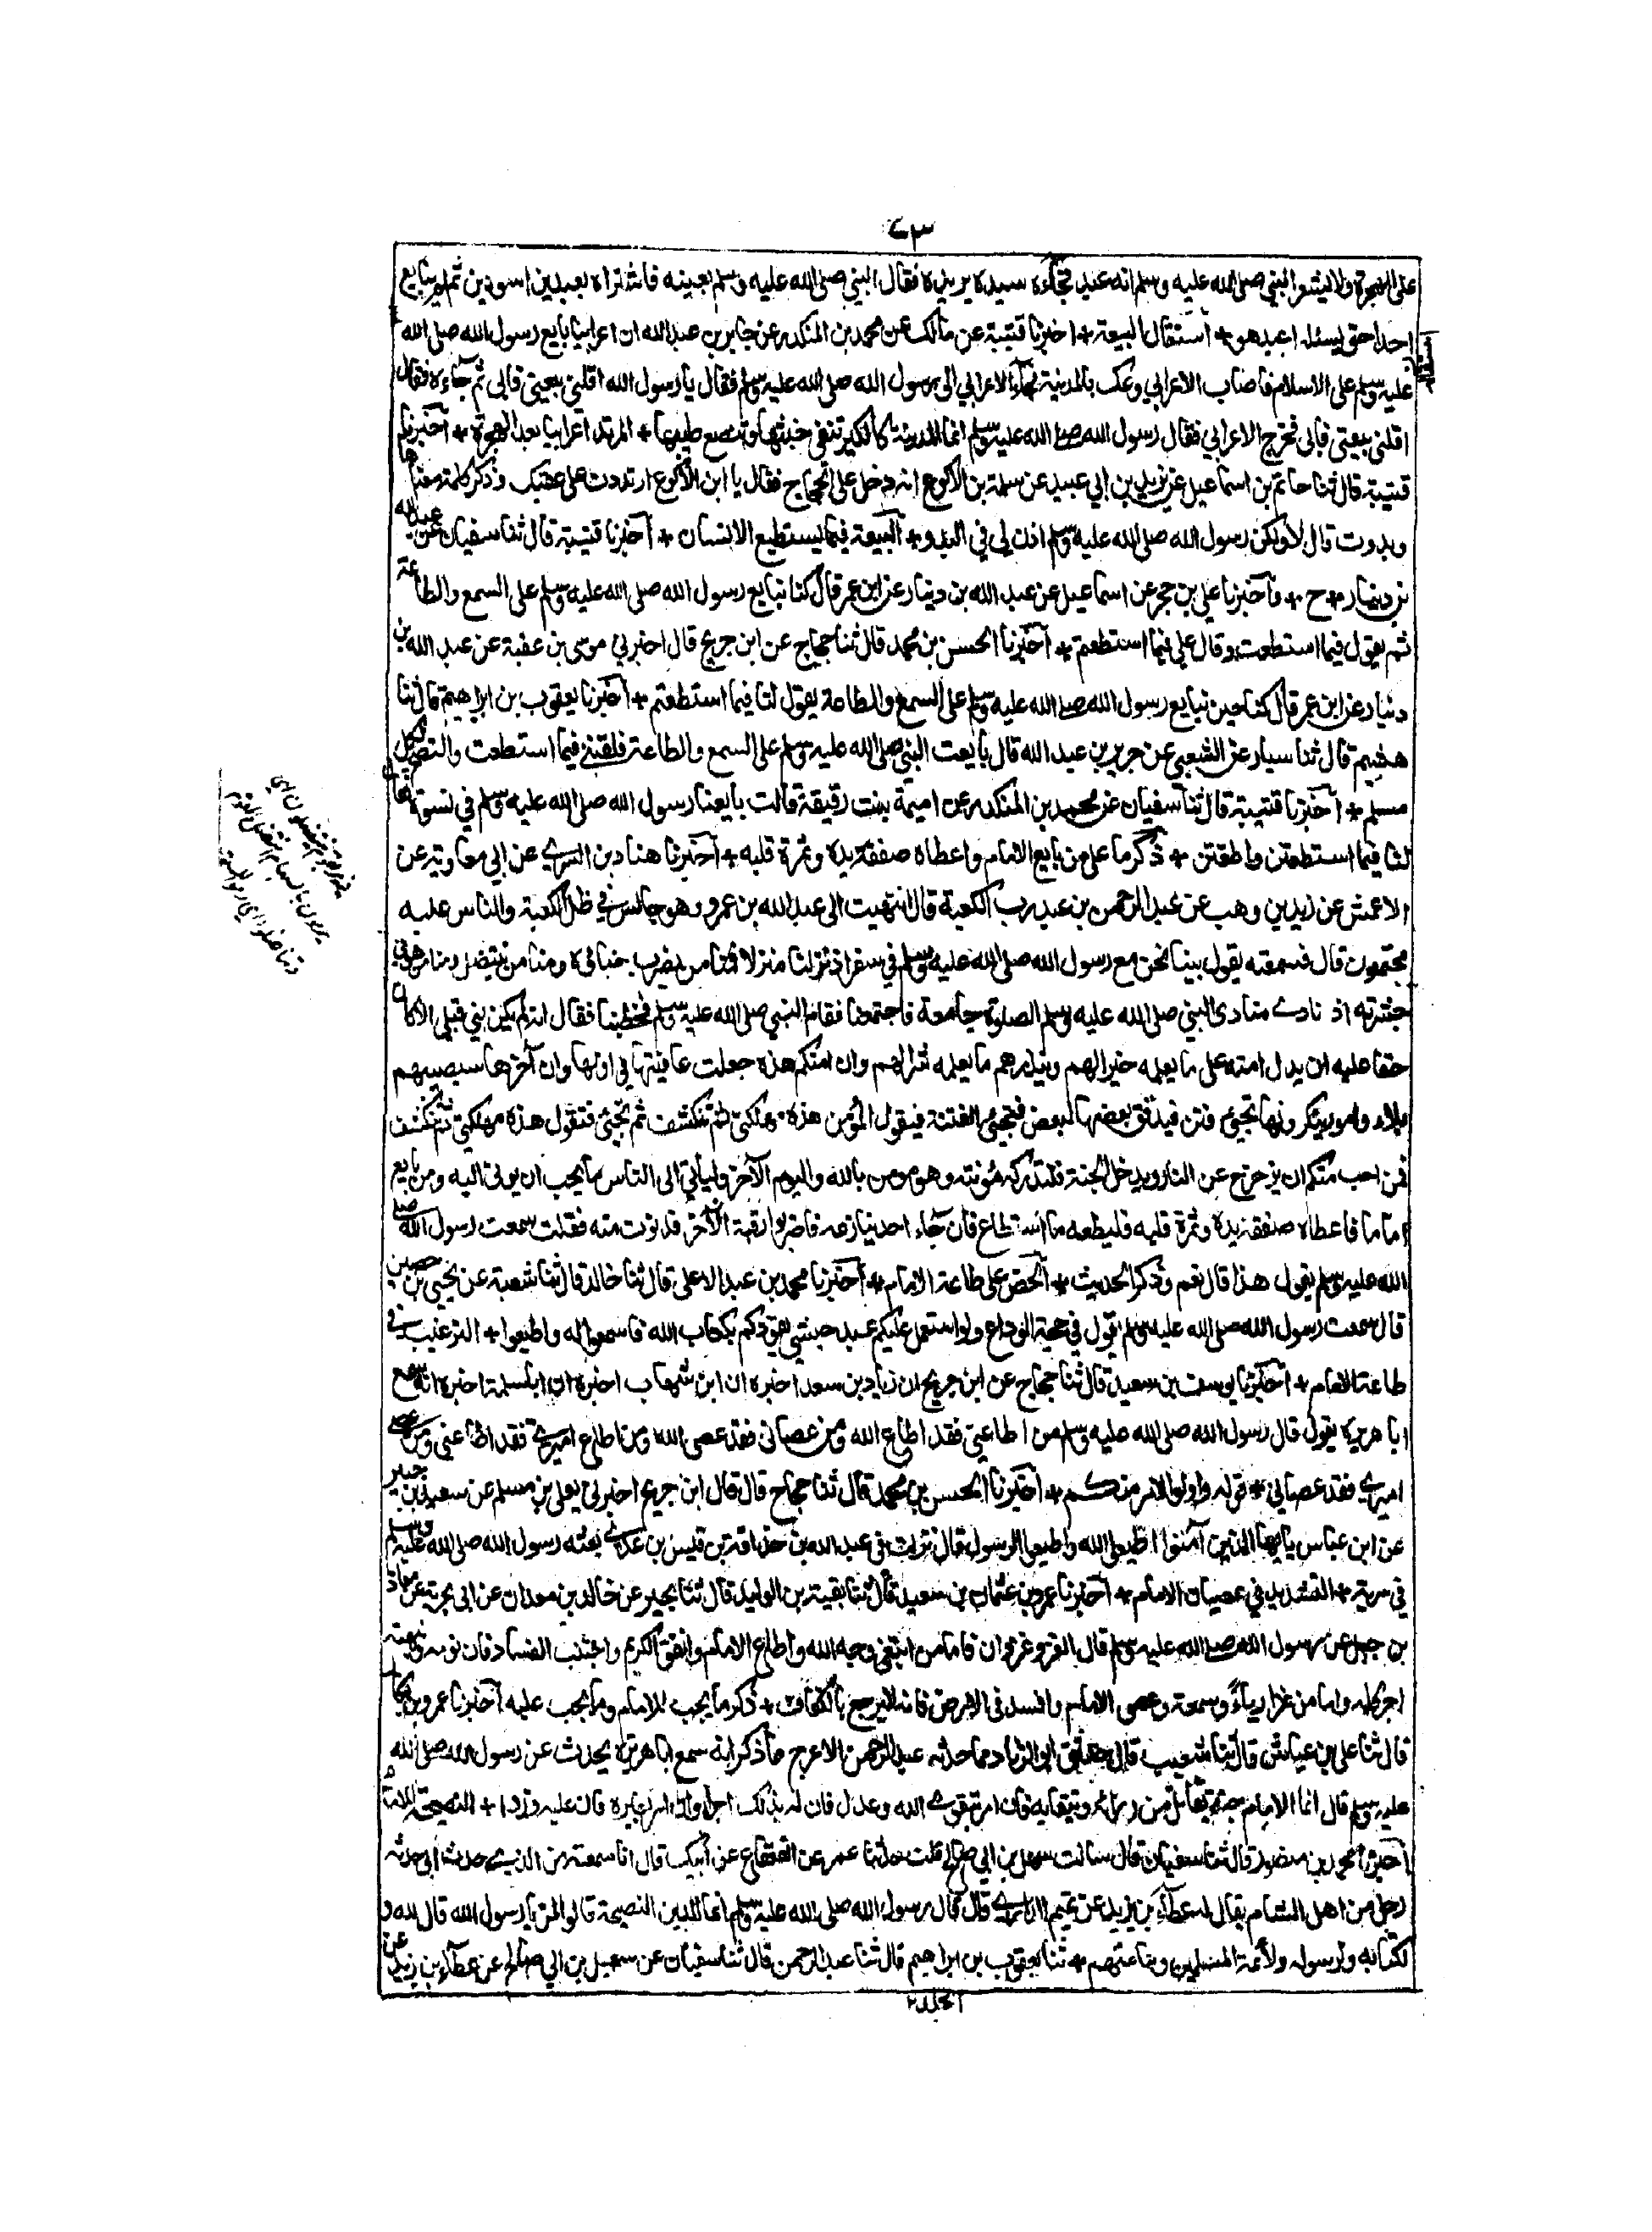 ٧٣
على الهجرة ولا يشعر النبي صلى الله عليه وسلم انه عبد فجآءه سيده يريده فقال النبي صلى الله عليه وسلم بعنيه فاشتراه بعبدين اسودين ثم لم يبايع
احدا حتى يسئله اعبد هو + استقالة البيعة + اخبرنا قتيبة عن مالك عن محمد بن المنكدر عن جابر بن عبد الله ان اعرابيا بايع رسول الله صلى الله
عليه وسلم على الاسلام فاصاب الاعرابي وعك بالمدينة فجآء الاعرابي الى رسول الله صلى الله عليه وسلم فقال يا رسول الله اقلني بيعتي فابى ثم جآءه فقال
اقلني بيعتي فابى فخرج الاعرابي فقال رسول الله صلى الله عليه وسلم انما المدينة كالكير تنفي خبثها وتنصع طيبها + المرتد اعرابيا بعد الهجرة + اخبرنا
قتيبة قال ثنا حاتم بن اسماعيل عن يزيد بن ابي عبيد عن سلمة بن الاكوع انه دخل على الحجاج فقال يا ابن الاكوع ارتددت على عقبيك وذكر كلمة معناها
وبدوت قال لا ولكن رسول الله صلى الله عليه وسلم اذن لي في البدو + البيعة فيما يستطيع الانسان + اخبرنا قتيبة قال ثنا سفيان عن عبد الله
بن دينار + ح + واخبرنا علي بن حجر عن اسماعيل عن عبد الله بن دينار عن ابن عمر قال كنا نبايع رسول الله صلى الله عليه وسلم على السمع والطاعة
ثم يقول فيما استطعت وقال علي فيما استطعتم + اخبرنا الحسن بن محمد قال ثنا حجاج عن ابن جريج قال اخبرني موسى بن عقبة عن عبد الله بن
دينار عن ابن عمر قال كنا حين نبايع رسول الله صلى الله عليه وسلم على السمع والطاعة يقول لنا فيما استطعتم + اخبرنا يعقوب بن ابراهيم قال ثنا
هشيم قال ثنا سيار عن الشعبي عن جرير بن عبد الله قال بايعت النبي صلى الله عليه وسلم على السمع والطاعة فلقنني فيما استطعت والنصح لكل
مسلم + اخبرنا قتيبة قال ثنا سفيان عن محمد بن المنكدر عن اميمة بنت رقيقة قالت بايعنا رسول الله صلى الله عليه وسلم في نسوة فقال
لنا فيما استطعتن واطقتن + ذكر ما على من بايع الامام واعطاه صفقة يده وثمرة قلبه + اخبرنا هناد بن السري عن ابي معاوية عن
الاعمش عن زيد بن وهب عن عبد الرحمن بن عبد رب الكعبة قال انتهيت الى عبد الله بن عمرو وهو جالس في ظل الكعبة والناس عليه
مجتمعون قال فسمعته يقول بينا نحن مع رسول الله صلى الله عليه وسلم في سفر اذ نزلنا منزلا فمنا من يضرب خباءه ومنا من ينتضل ومنا من هو في
جشرته اذ نادى منادى النبي صلى الله عليه وسلم الصلوة جامعة فاجتمعنا فقام النبي صلى الله عليه وسلم فخطبنا فقال انه لم يكن نبي قبلي الا كان
حقا عليه ان يدل امته على ما يعلمه خيرا لهم وينذرهم ما يعلمه شرا لهم وان امتكم هذه جعلت عافيتها في اولها وان آخرها سيصيبهم
بلاء وامور ينكرونها تجيئ فتن فيدقق بعضها لبعض فتجيئ الفتنة فيقول المؤمن هذه مهلكتي ثم تنكشف ثم تجيئ فتقول هذه مهلكتي ثم تنكشف
فمن احب منكم ان يزحزح عن النار ويدخل الجنة فلتدركه مؤنته وهو مومن بالله واليوم الآخر وليأتي الى الناس ما يحب ان يوتى اليه ومن بايع
اماما فاعطاه صفقة يده وثمرة قلبه فليطعه ما استطاع فان جآء احد ينازعه فاضربوا رقبة الآخر فدنوت منه فقلت سمعت رسول الله صلى
الله عليه وسلم يقول هذا قال نعم وذكر الحديث + الحض على طاعة الامام + اخبرنا محمد بن عبد الاعلى قال ثنا خالد قال ثنا شعبة عن يحيى بن حصين
قال سمعت رسول الله صلى الله عليه وسلم يقول في حجة الوداع ولو استعمل عليكم عبد حبشي يقودكم بكتاب الله فاسمعوا له واطيعوا + الترغيب في
طاعة الامام + اخبرنا يوسف بن سعيد قال ثنا حجاج عن ابن جريج ان زياد بن سعد اخبره ان ابن شهاب اخبره ان ابا سلمة اخبره انه سمع
ابا هريرة يقول قال رسول الله صلى الله عليه وسلم من اطاعني فقد اطاع الله ومن عصاني فقد عصى الله ومن اطاع اميري فقد اطاعني ومن عصى
اميري فقد عصاني + قوله واولوا الامر منكم + اخبرنا الحسن بن محمد قال ثنا حجاج قال قال ابن جريج اخبرني يعلى بن مسلم عن سعيد بن جبير
عن ابن عباس يا ايها الذين آمنوا اطيعوا الله واطيعوا الرسول قال نزلت في عبد الله بن حذافة بن قيس بن عدي بعثه رسول الله صلى الله عليه وسلم
في سرية + التشديد في عصيان الامام + اخبرنا عمرو بن عثمان بن سعيد قال ثنا بقية بن الوليد قال ثنا بحير عن خالد بن معدان عن ابي بحرية عن معاذ
بن جبل عن رسول الله صلى الله عليه وسلم قال الغزو غزوان فاما من ابتغى وجه الله واطاع الامام وانفق الكريمة واجتنب الفساد فان نومه ونبهته
اجر كله واما من غزا رياءً وسمعة وعصى الامام وافسد في الارض فانه لا يرجع بالكفاف + ذكر ما يجب للامام وما يجب عليه اخبرنا عمران بن بكار
قال ثنا علي بن عياش قال ثنا شعيب قال حدثني ابو الزناد مما حدثه عبد الرحمن الاعرج مما ذكر انه سمع ابا هريرة يحدث عن رسول الله صلى الله
عليه وسلم قال انما الامام جنة يقاتل من ورائه ويتقى به فان امر بتقوى الله وعدل فان له بذلك اجرا وان امر بغيره فان عليه وزرا + النصيحة للامام
اخبرنا محمد بن منصور قال ثنا سفيان قال سالت سهيل بن ابي صالح قلت حدثنا عمرو عن القعقاع عن ابيك قال انا سمعته من الذي حدث ابي حدثه
رجل من اهل الشام يقال له عطآء بن يزيد عن تميم الداري قال قال رسول الله صلى الله عليه وسلم انما الدين النصيحة قالوا لمن يا رسول الله قال لله و
لكتابه ولرسوله ولأئمة المسلمين وعامتهم + ثنا يعقوب بن ابراهيم قال ثنا عبد الرحمن قال ثنا سفيان عن سهيل بن ابي صالح عن عطآء بن يزيد عن
المجلد٢